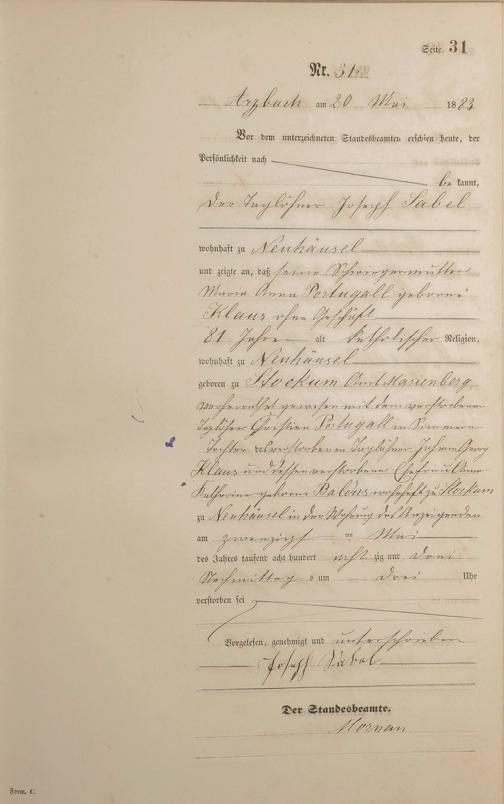 Seite 31
Nr. 31
Arzbach am 20 Mai 1883
Vor dem unterzeichneten Standesbeamten erschien heute, der
Persönlichkeit nach
be kannt,
der Taglöhner Joseph Sabel
wohnhaft zu Neuhäusel
und zeigte an, daß seine Schwiegermutter
Maria Anna Portugall geborne
Klaus ohne Geschäft
81 Jahre alt katholischer Religion,
wohnhaft zu Neuhäusel
geboren zu Stockum Amt Marienberg
verheirathet gewesen mit dem verstorbenen
Taglöhner Christian Portugall in Simmern
Tochter des verstorbenen Taglöhner Johann Georg
Klaus und dessen verstorbene Ehefrau Anna
Katharine geborne Baldus wohnhaft zu Stockum
zu Neuhäusel in der Wohnung des Anzeigenden
am zwanzigst en Mai
des Jahres tausend acht hundert acht zig und drei
Nachmittag s um drei Uhr
verstorben sei
Vorgelesen, genehmigt und unterschrieben
Joseph Sabel
Der Standesbeamte.
Form. C.